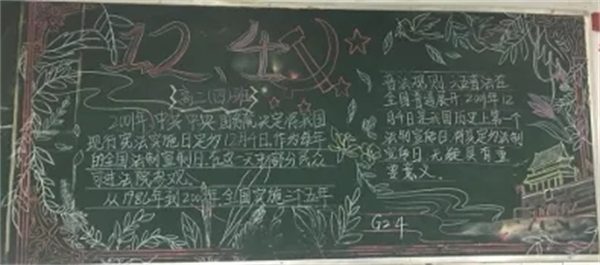 12.4
高二(四)班
2001年,中共中央、国务院决定将我国
现行宪法实施日定为12月4日作为每年
的全国法制宣传日,在这一天里部分民众
可进法院参观。
从1986年到2000年全国实施三个五年
普法规则,天普法在
全国普遍展开2001年12
月4日是我国历史上第一个
法制宣传日,将其定为法制
宣传日,无疑具有重
要意义。
G24